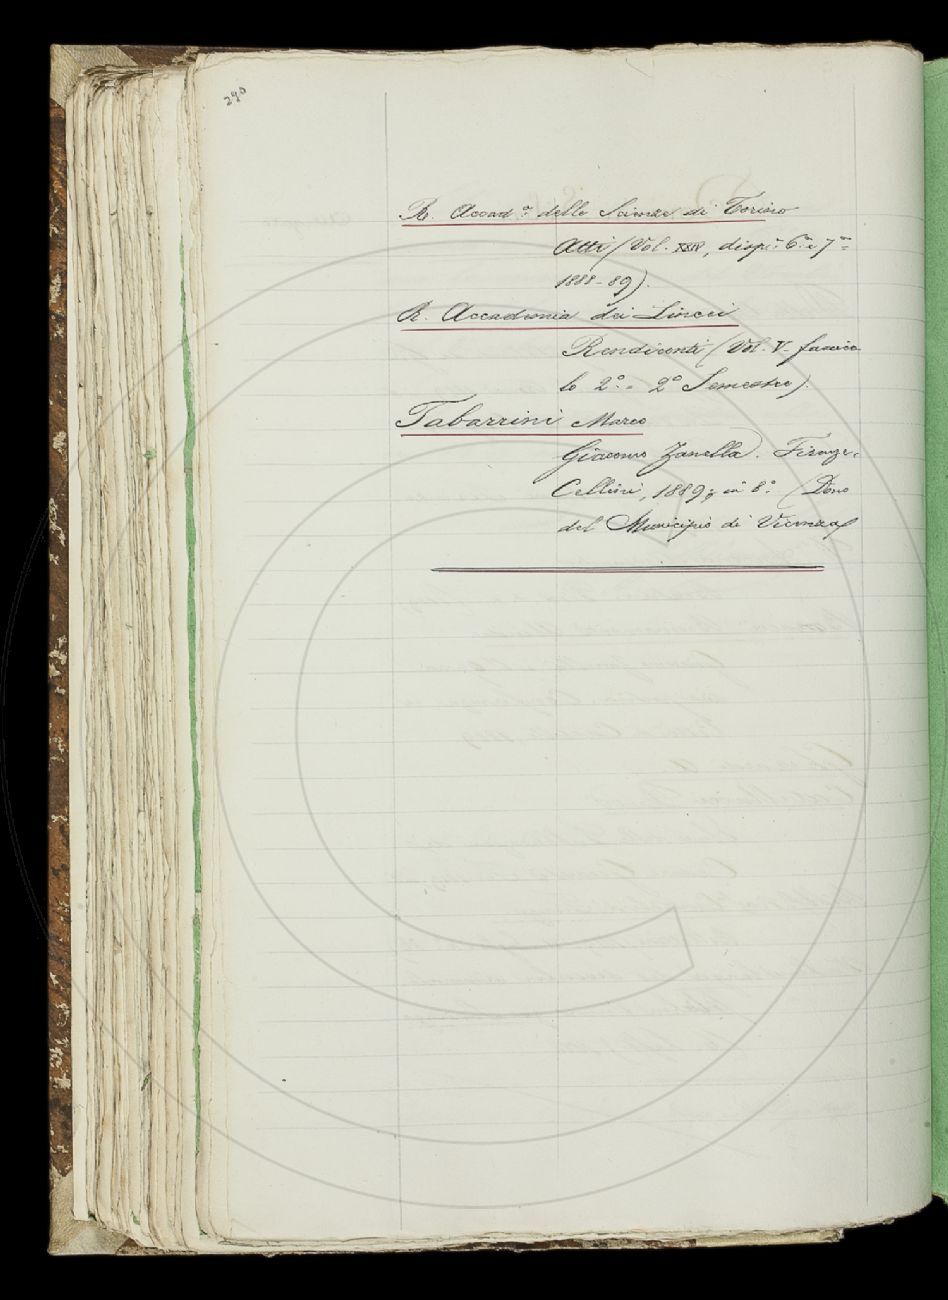 290
R. Accad.ª delle Scienze di Torino
Atti (Vol. XXIV, disp.e 6.ª e 7.ª =
1888-89).
R. Accademia dei Lincei
Rendiconti (Vol. V. fascico
lo 2.º = 2º Semestre).
Tabarrini Marco
Giacomo Zanella. Firenze.
Cellini, 1889; in 8.º (Dono
del Municipio di Vicenza)